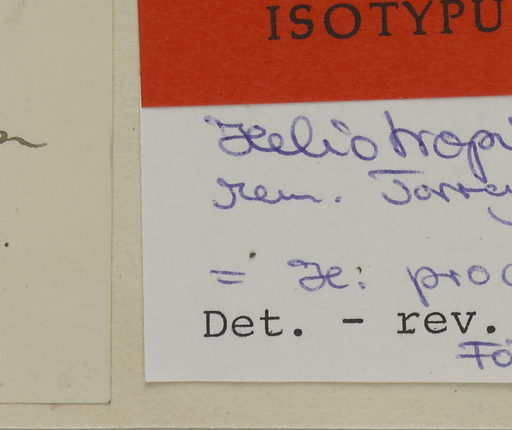 ISOTYPU
Heliotropi
rem. Torrey
= H: proc
Det. - rev.
Fö